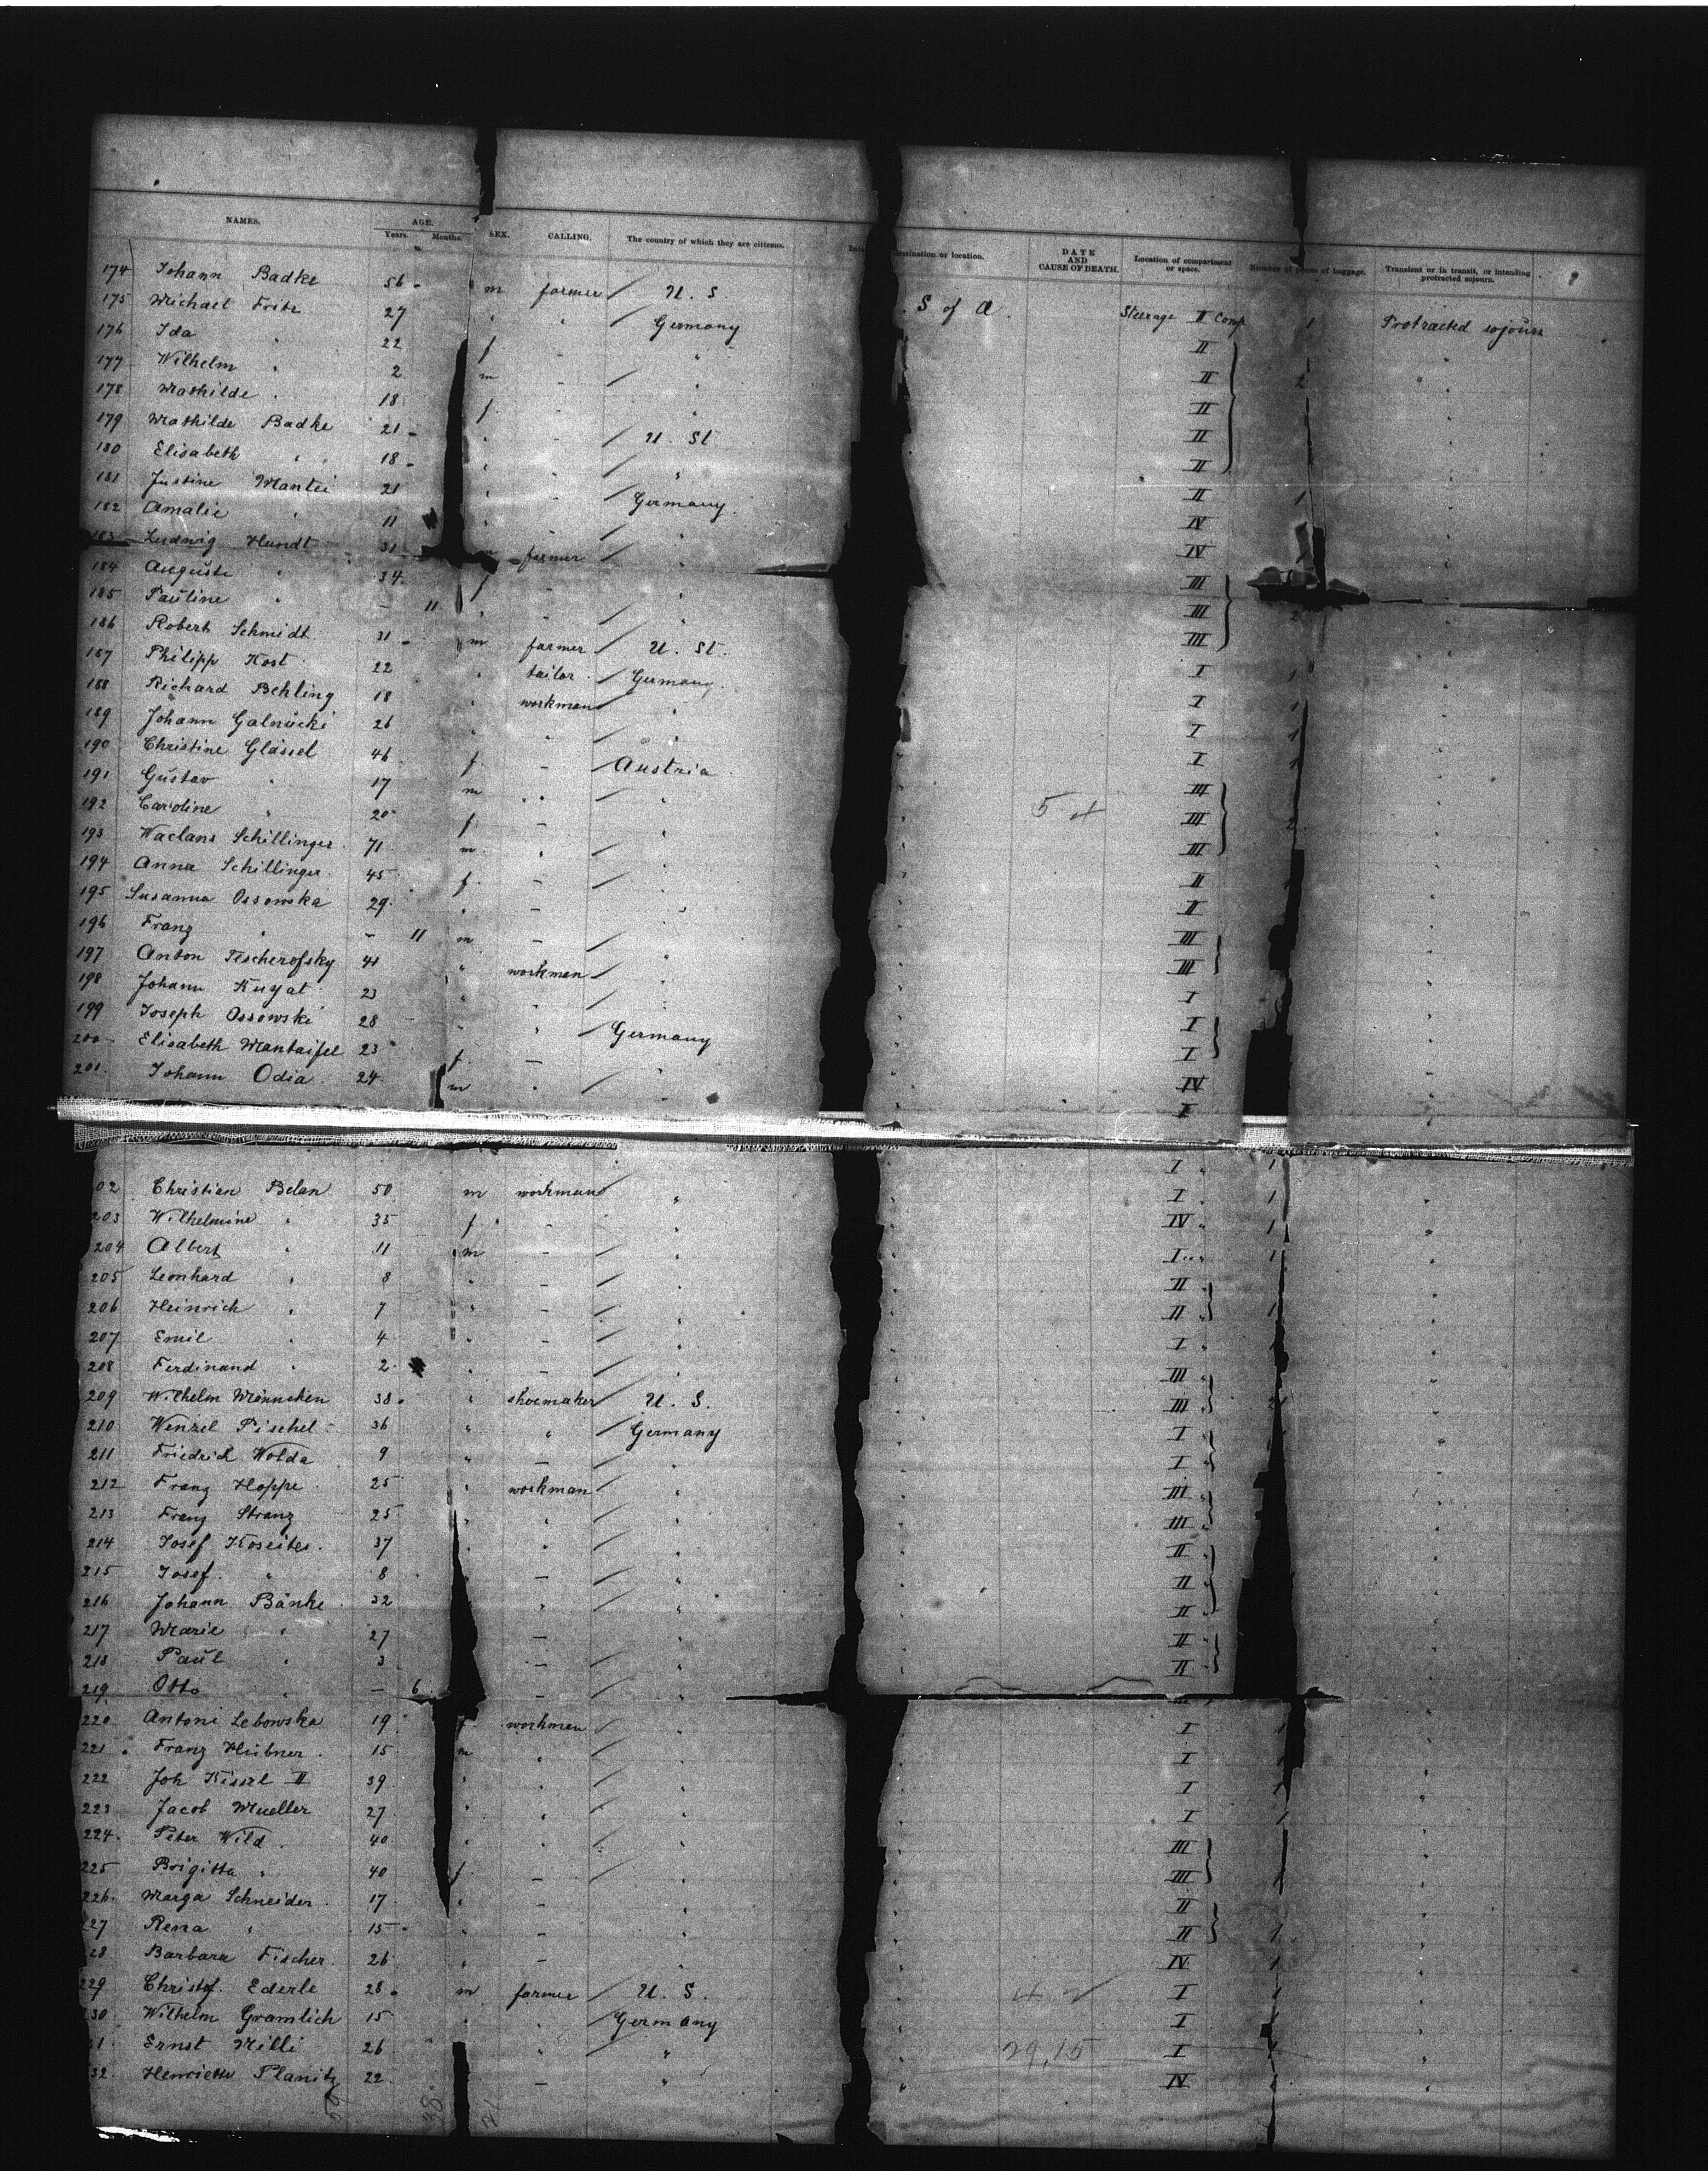 NAMES. AGE. Years. Months. SEX. CALLING. The country of which they are citizens. destination or location. DATE AND CAUSE OF DEATH. Location of compartment or space. Number of pieces of baggage. Transient or in transit, or intending protracted sojourn.
174 Johann Badke 56 m farmer U. S. S of A. Steerage II Comp 1 Protracted sojourn
175 Michael Fritz 27 " " Germany II
176 Ida " 22 f " II 2
177 Wilhelm " 2 m - " II
178 Mathilde " 18 f - " II
179 Mathilde Badke 21 " - U. St. II
180 Elisabeth " 18 " - " II 1
181 Justine Mantei 21 " - Germany IV
182 Amalie " 11 " - " IV
183 Ludwig Hundt 31 m farmer " III
184 Auguste " 34 f - " III 2
185 Pauline " - 11 " - " III
186 Robert Schmidt 31 m farmer U. St. I 1
187 Philipp Kost 22 " tailor Germany I 1
188 Richard Behling 18 " workman " I 1
189 Johann Galnücki 26 " " " I 1
190 Christine Glässel 46 f - Austria III
191 Gustav " 17 m " " III 2
192 Caroline " 20 f - " III
193 Waclans Schillinger 71 m " " II
194 Anna Schillinger 45 f - " II
195 Susanna Ossowska 29 " - " III
196 Franz " - 11 m - " III
197 Anton Tscherofsky 41 " workman " I
198 Johann Kuyat 23 " " " I
199 Joseph Ossowski 28 " " Germany I
200 Elisabeth Mantaifel 23 f - " IV
201 Johann Odia 24 m " " I
I " 1
02 Christian Belan 50 m workman " I " 1
203 Wilhelmine " 35 f - " IV " 1
204 Albert " 11 m - " I " 1
205 Leonhard " 8 " - " II "
206 Heinrich " 7 " - " II " 1
207 Emil " 4 " - " I "
208 Ferdinand " 2 " - " III "
209 Wilhelm Männchen 38 " shoemaker U. S. III "
210 Wenzel Pischel 36 " " Germany I "
211 Friedrich Wolda 9 " - " I "
212 Franz Hoppe 25 " workman " III "
213 Franz Stranz 25 " " " III "
214 Josef Koseiter 37 " " " II "
215 Josef " 8 " - " II "
216 Johann Bänke 32 " " II "
217 Marie " 27 - " II "
218 Paul " 3 - " II "
219 Otto " - 6 - "
220 Antoni Lebowska 19 workman " I
221 Franz Hübner 15 m " " I
222 Joh Kissel II 39 " " " I
223 Jacob Mueller 27 " " " I 1
224 Peter Wild 40 " " " III
225 Brigitta " 40 f - " III
226 Marga Schneider 17 " - " II
227 Rena " 15 " - " II 1
28 Barbara Fischer 26 " - " IV 1
229 Christof Ederle 28 m farmer U. S. I 1
30 Wilhelm Gramlich 15 " " Germany I
31 Ernst Milli 26 " " I
32 Henriette Planitz 22 - " IV